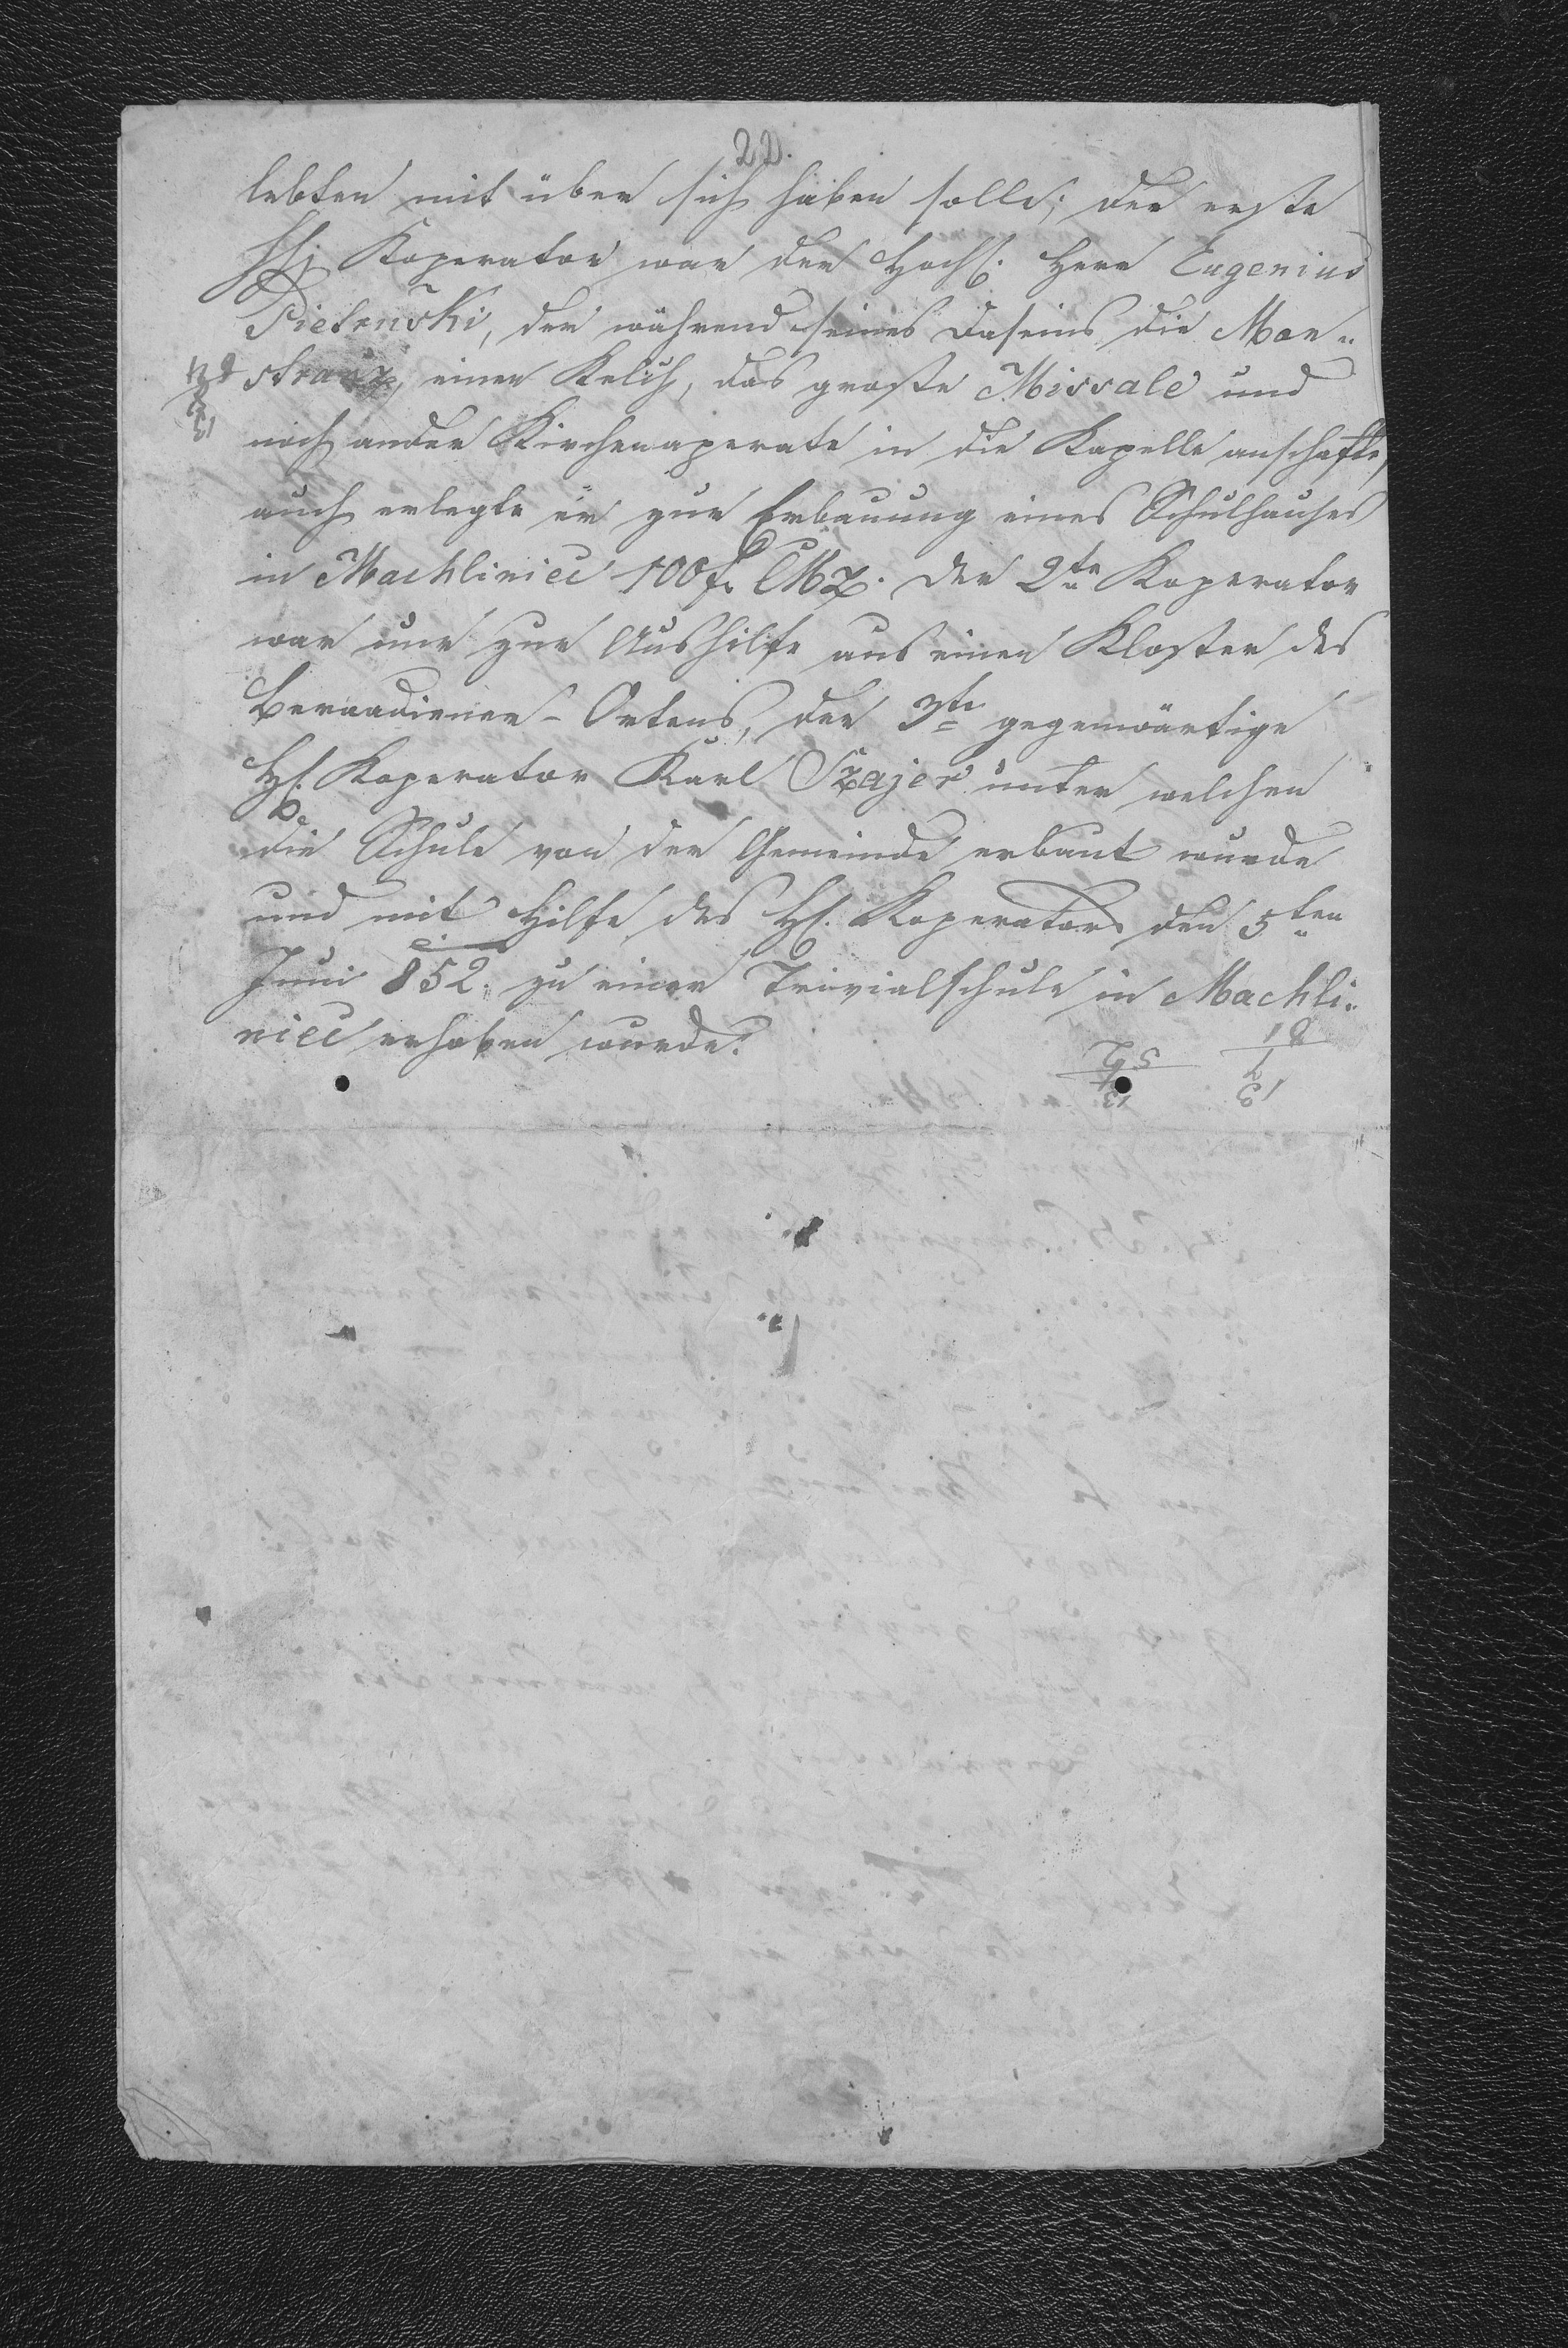 22.
lebten mit über sich haben solle; der erste
H. Koperator war der Hoch. Herr Eugenius
Pietruski, der während seines Daseins die Mon„
stranz, einen Kelch, das große Missale und
noch ander Kirchenaperate in die Kapelle anschafte,
auch erlegte er zur Erbauung eines Schulhauses
in Machliniec 100 f. CMz. Der 2te Koperator
war nur zur Aushilfe aus einen Kloster des
Bernadiener-Ortens, der 3te gegenwärtige
H. Koperator Karl Szajer unter welchen
die Schule von der Gemeinde erbaut wurde
und mit Hilfe des H. Koperators den 5ten
Juni 852. zu einer Trivialschule in Machli„
niec erhoben wurde.